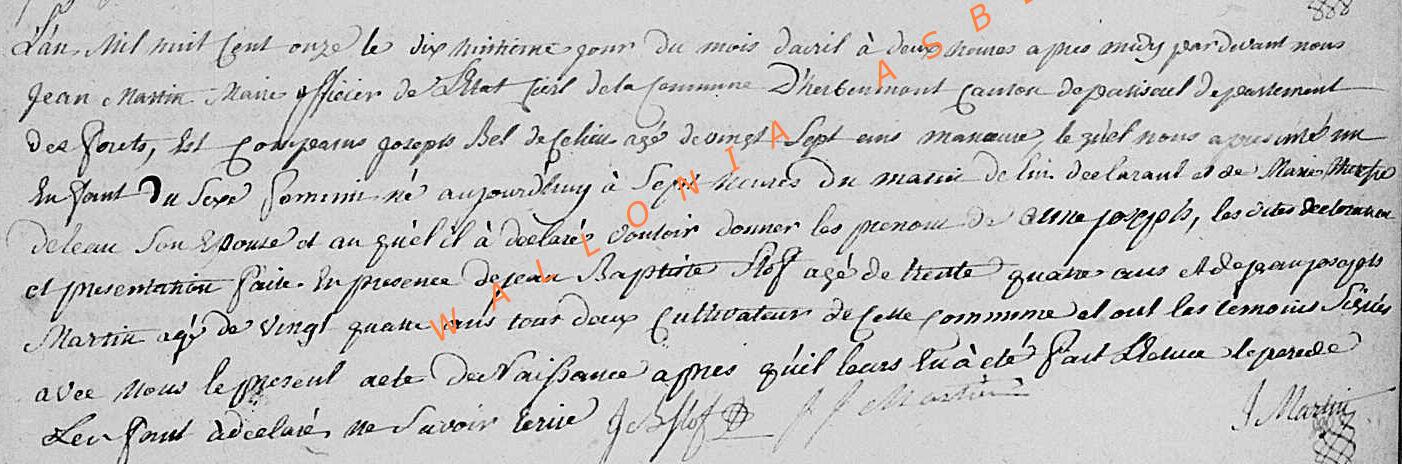 L'án Mil huit Cent onze le dix huitieme jour du mois d'avril à deux heures apres midy pardevant nous
Jean Martin Maire officier de L'Etat Civil de la Commune D'herbeumont Canton de paliseul departement
des forets, Est Comparus joseph Bel de agé de vingt Sept ans manœuvre, le quel nous a presenté un
Enfant Du Sexe feminin né aujourdhuy à Sept heures du matin de lui declarant et de Marie therese
deleau Son Epouse et au quel il à declaré vouloir donner les prenom de anne joseph, les dites declaration
et presentation faite En presence de jean Baptiste Slof agé de trente quatre ans et de jean joseph
Martin agé de vingt quatre ans tout deux Cultivateur de Cette Commune et ont les temoins Signés
avec nous le present acte de Naissance apres qu'il leurs En à été fait Lecture le pere de
L'enfant à declaré ne Savoir Ecrire J B Slof J J Martin J Martin
WALLONIA ASB